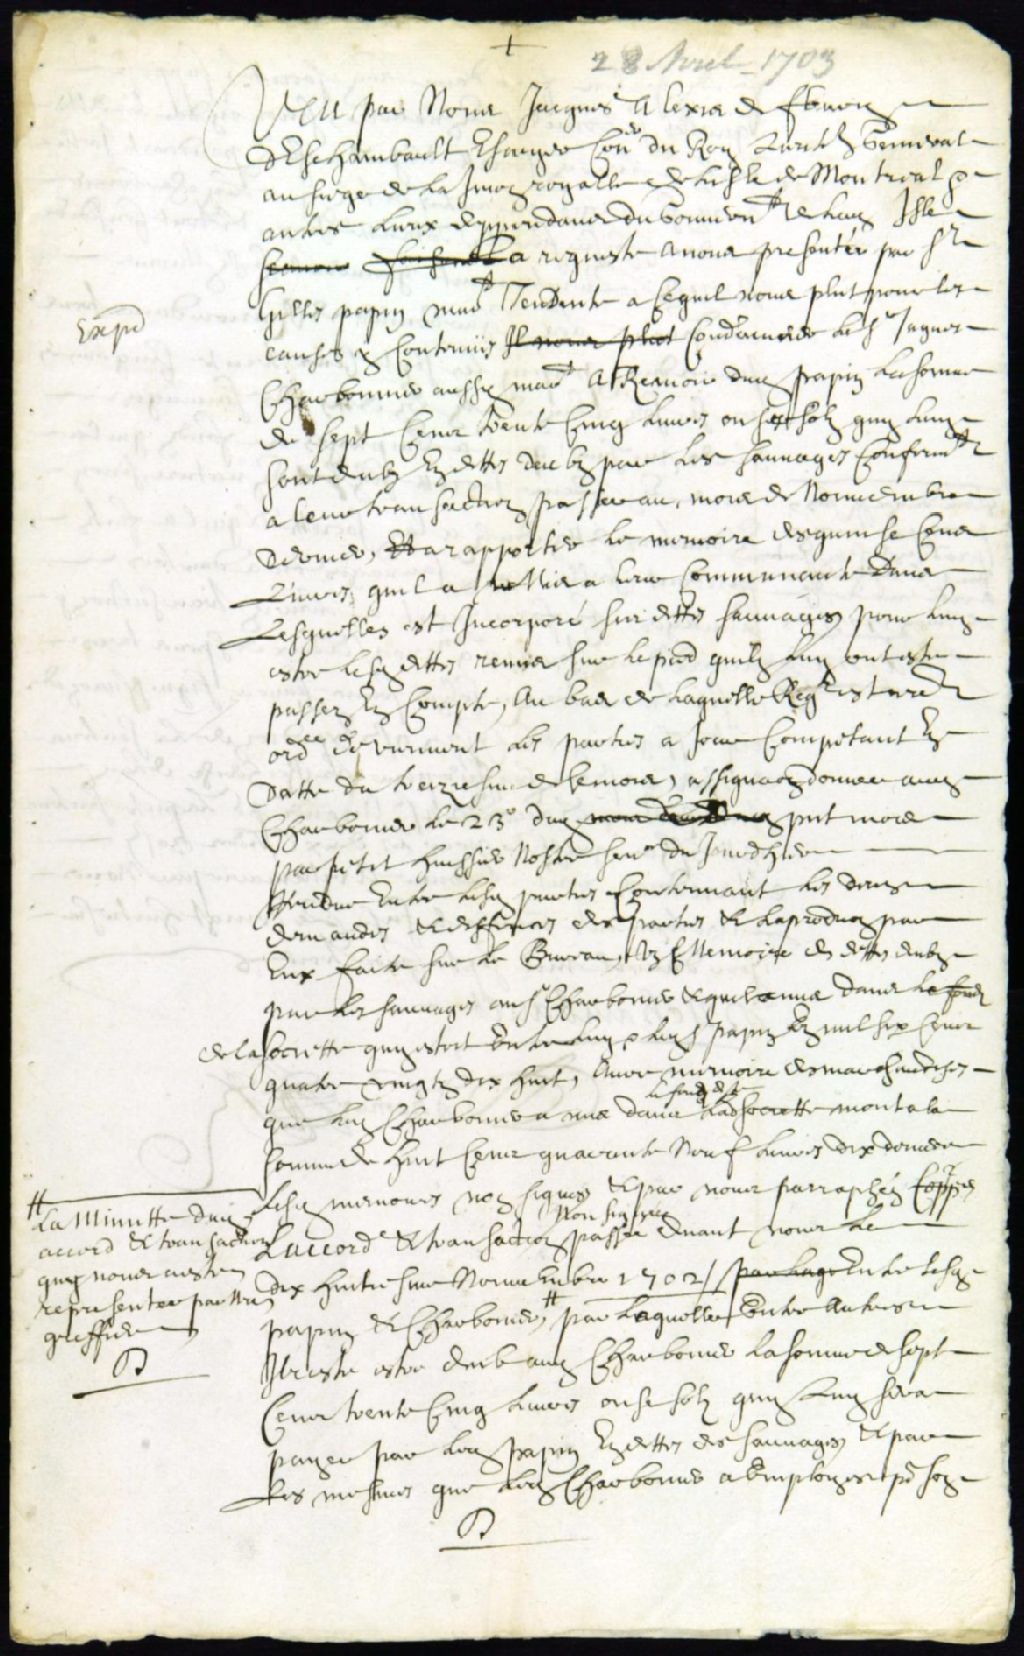 28 Avril 1703
Veu par Nous Jacques Alexis de fleury
dEschambault Escuyer Conr du Roy Lieutt General
au siege de la Jurion royalle de lisle de Montreal &
autres lieux deppendans du Gouvernt de lad Isle
la requeste a nous presentée par Sr
Gilles papin mard Tendente a cequil nous plut pour les
Expd
causes y Contenües Il nous plut Condamner le Sr Jacques
Charbonnier aussy mard A Recevoir dud papin la somme
de sept Cens trente Cinq livres onse solz quy luy
sont deubz En dettes deubz par les sauvages Conformt
a leur transaction passée au mois de Novembre
dernier, Et a rapporter le memoire des quinse Cens
Livres quil a mis a leur Communauté dans
Lesquelles est Incorporé les dettes sauvages pour luy
estre lesd dettes remise sur le pied quilz luy ont esté
passez En Compte, Au bas de laquelle Reqte est nre
ordce de viennent les parties a jour Compétant En
datte du treziesme de ce mois, assignaon donnée aud
Charbonnier le 23e dud pnt mois
par petit huissier Nostre senc du Jourdhier
Rendue Entre lesd parties Contenant les dires
demandes & deffences des parties & la production par
Eux faite sur le Bureau, Un Memoire des dettes deubz
par les sauvages au Sr Charbonnier & quil a mis dans le fond
de la societte quy estoit Entre luy & led Sr papin En mil six Cens
quatre vingtz dix huit, Autre memoire des marchandises
le fond de
que led Charbonnier a mis dans lad societte montt a la
somme de huit Cens quarante Neuf livres dix deniers
Lesd memoires non signez & par nous parraphéz Coppie
non signée
Laccord & transaction passée devant nous le
dix huitiesme Novembre 1702 / Entre lesd
papin & Charbonnier, # par laquelle Entre Autres
Il reste estre deub aud Charbonnier la somme de sept
Cens trente Cinq livres onse solz quy luy sera
payée par led papin En dettes des sauvages & par
Les mesmes que led Charbonnier a Employés pd son
# La Minutte dud
accord & transaction
quy nous a esté
representée par nre
greffier